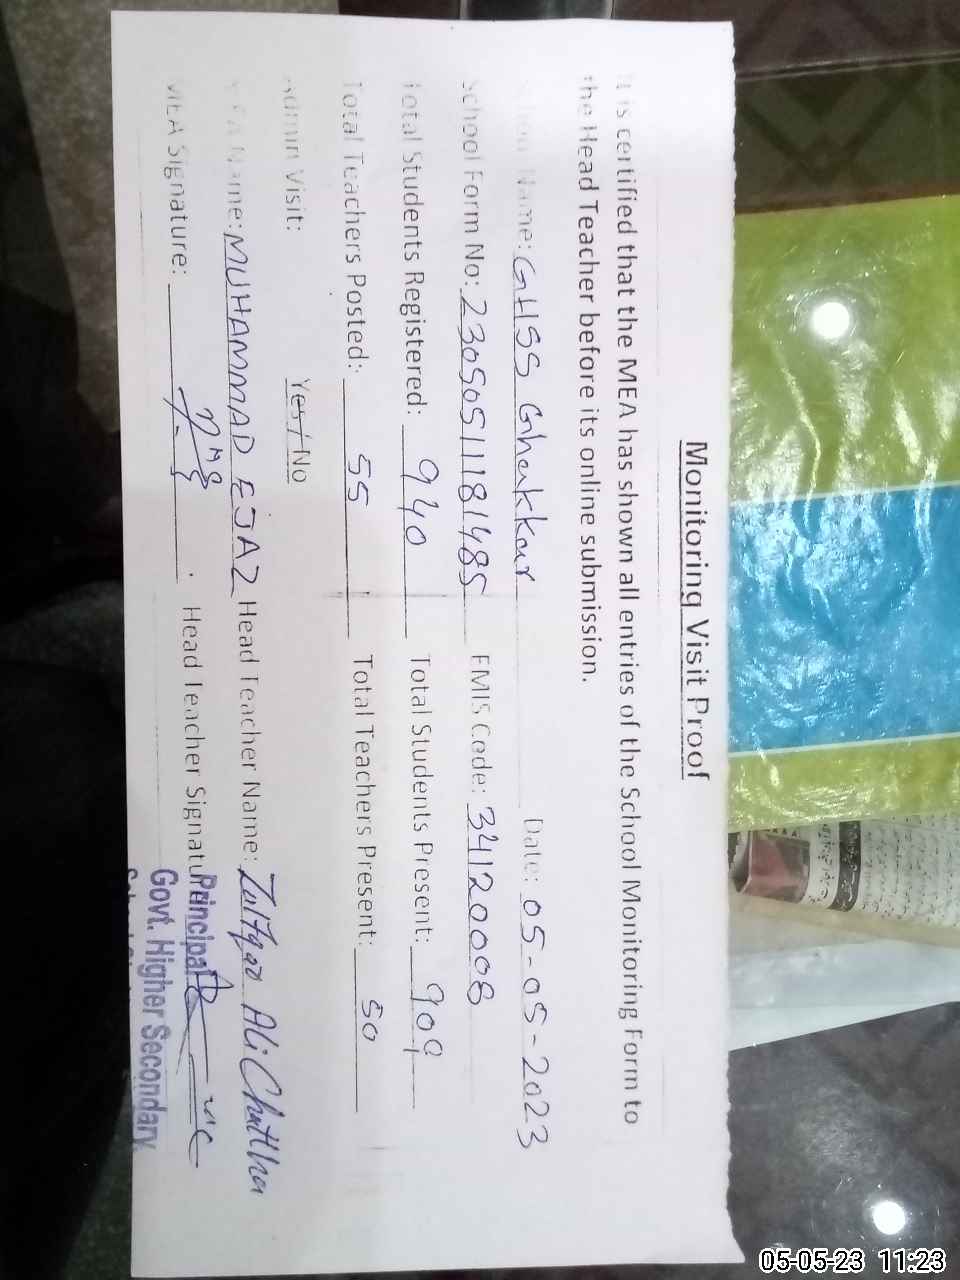 Monitoring Visit Proof
It is certified that the MEA has shown all entries of the School Monitoring Form to
the Head Teacher before its online submission.
School Name: GHSS Ghakkar Date: 05-05-2023
School Form No: 23050511181485 EMIS Code: 34120008
Total Students Registered: 940 Total Students Present: 909
Total Teachers Posted: 55 Total Teachers Present: 50
Admin Visit: Yes / No
MEA Name: MUHAMMAD EJAZ Head Teacher Name: Zulfqar Ali Chattha
MEA Signature: Head Teacher Signature
Principal
Govt. Higher Secondary
05-05-23 11:23